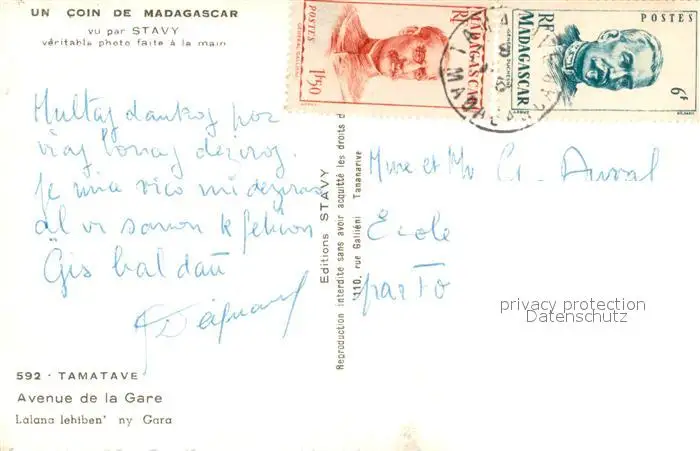 UN COIN DE MADAGASCAR
vu par STAVY
véritable photo faite à la main
POSTES
RF
MADAGASCAR
GÉNÉRAL GALLIENI
1F50
RF
MADAGASCAR
POSTES
GÉNÉRAL DUCHESNE
6F
Multaj dankoj por
viaj bonaj deziroj.
Je mia vico mi deziras
al vi sanon k feliĉon
Ĝis baldaŭ
Mme et Mr G. Duval
Ecole
par Fo
Editions STAVY
Reproduction interdite sans avoir acquitté les droits d
110, rue Galliéni Tananarive
privacy protection
Datenschutz
592 · TAMATAVE
Avenue de la Gare
Làlana lehiben' ny Gara